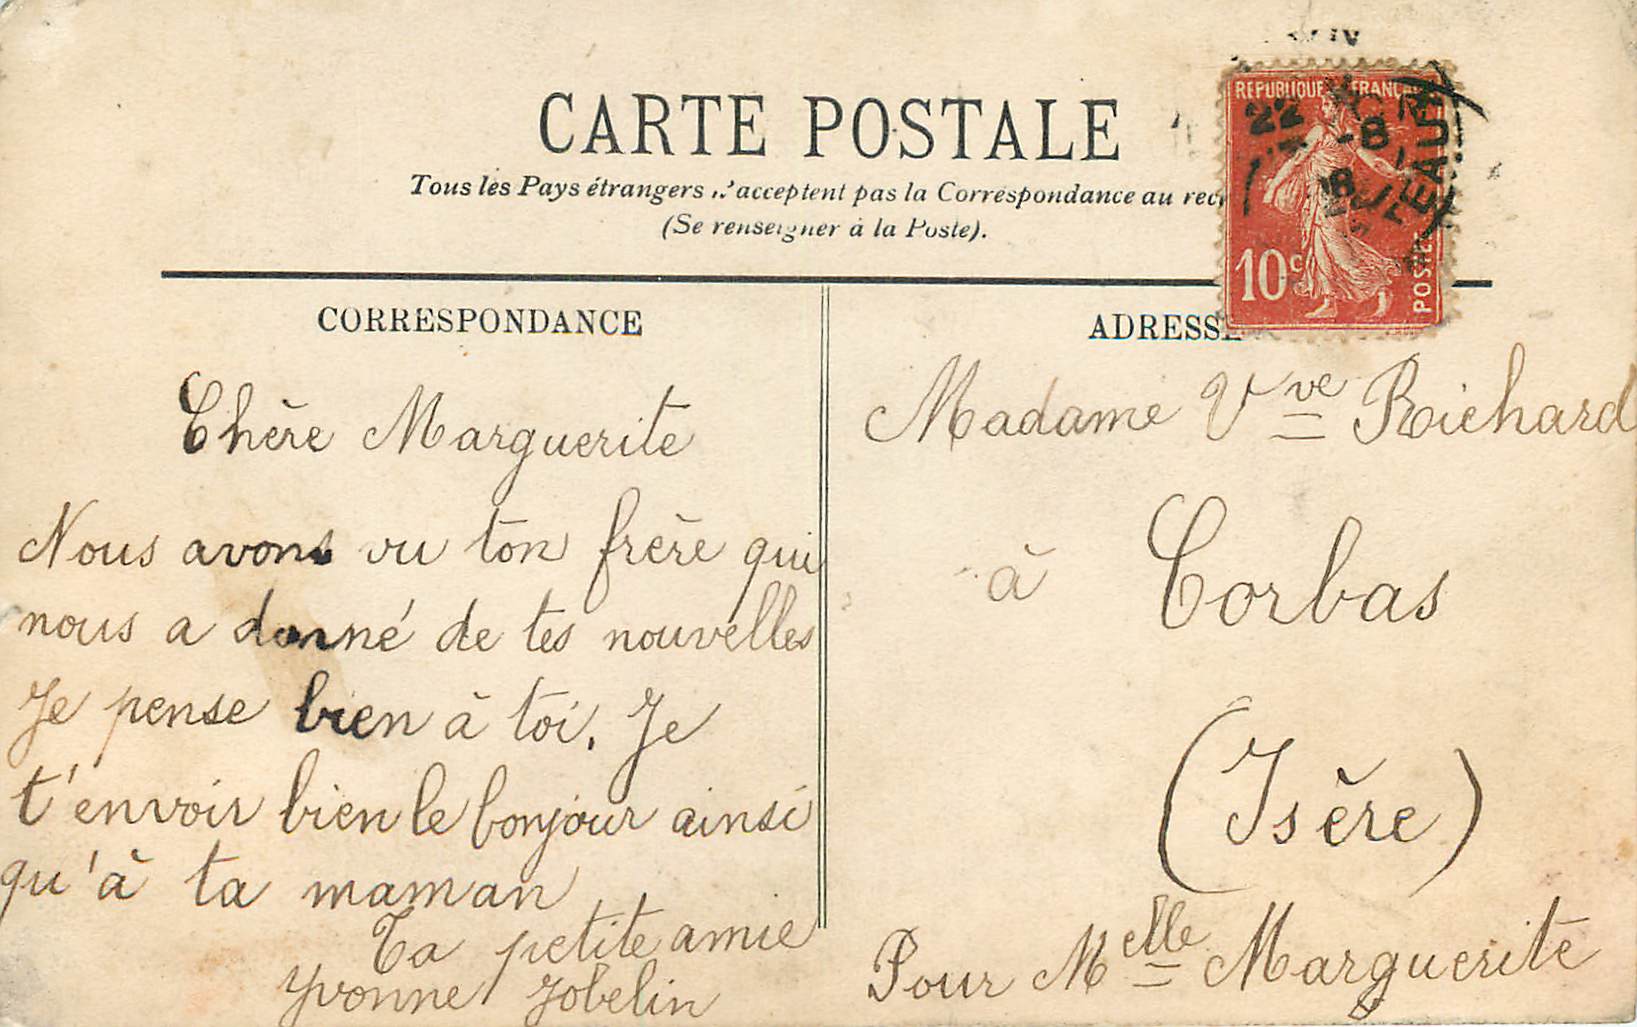 CARTE POSTALE
Tous les Pays étrangers n'acceptent pas la Correspondance au
(Se renseigner à la Poste).
REPUBLIQUE FRANÇAI
22
-8
8
10c
POSTES
CORRESPONDANCE
ADRESSE
Chère Marguerite
Nous avons vu ton frère qui
nous a donné de tes nouvelles
Je pense bien à toi. Je
t'envoir bien le bonjour ainsi
qu'à ta maman
Ta petite amie
Yvonne Jobelin
Madame Vve Richard
à Corbas
(Isère)
Pour Melle Marguerite